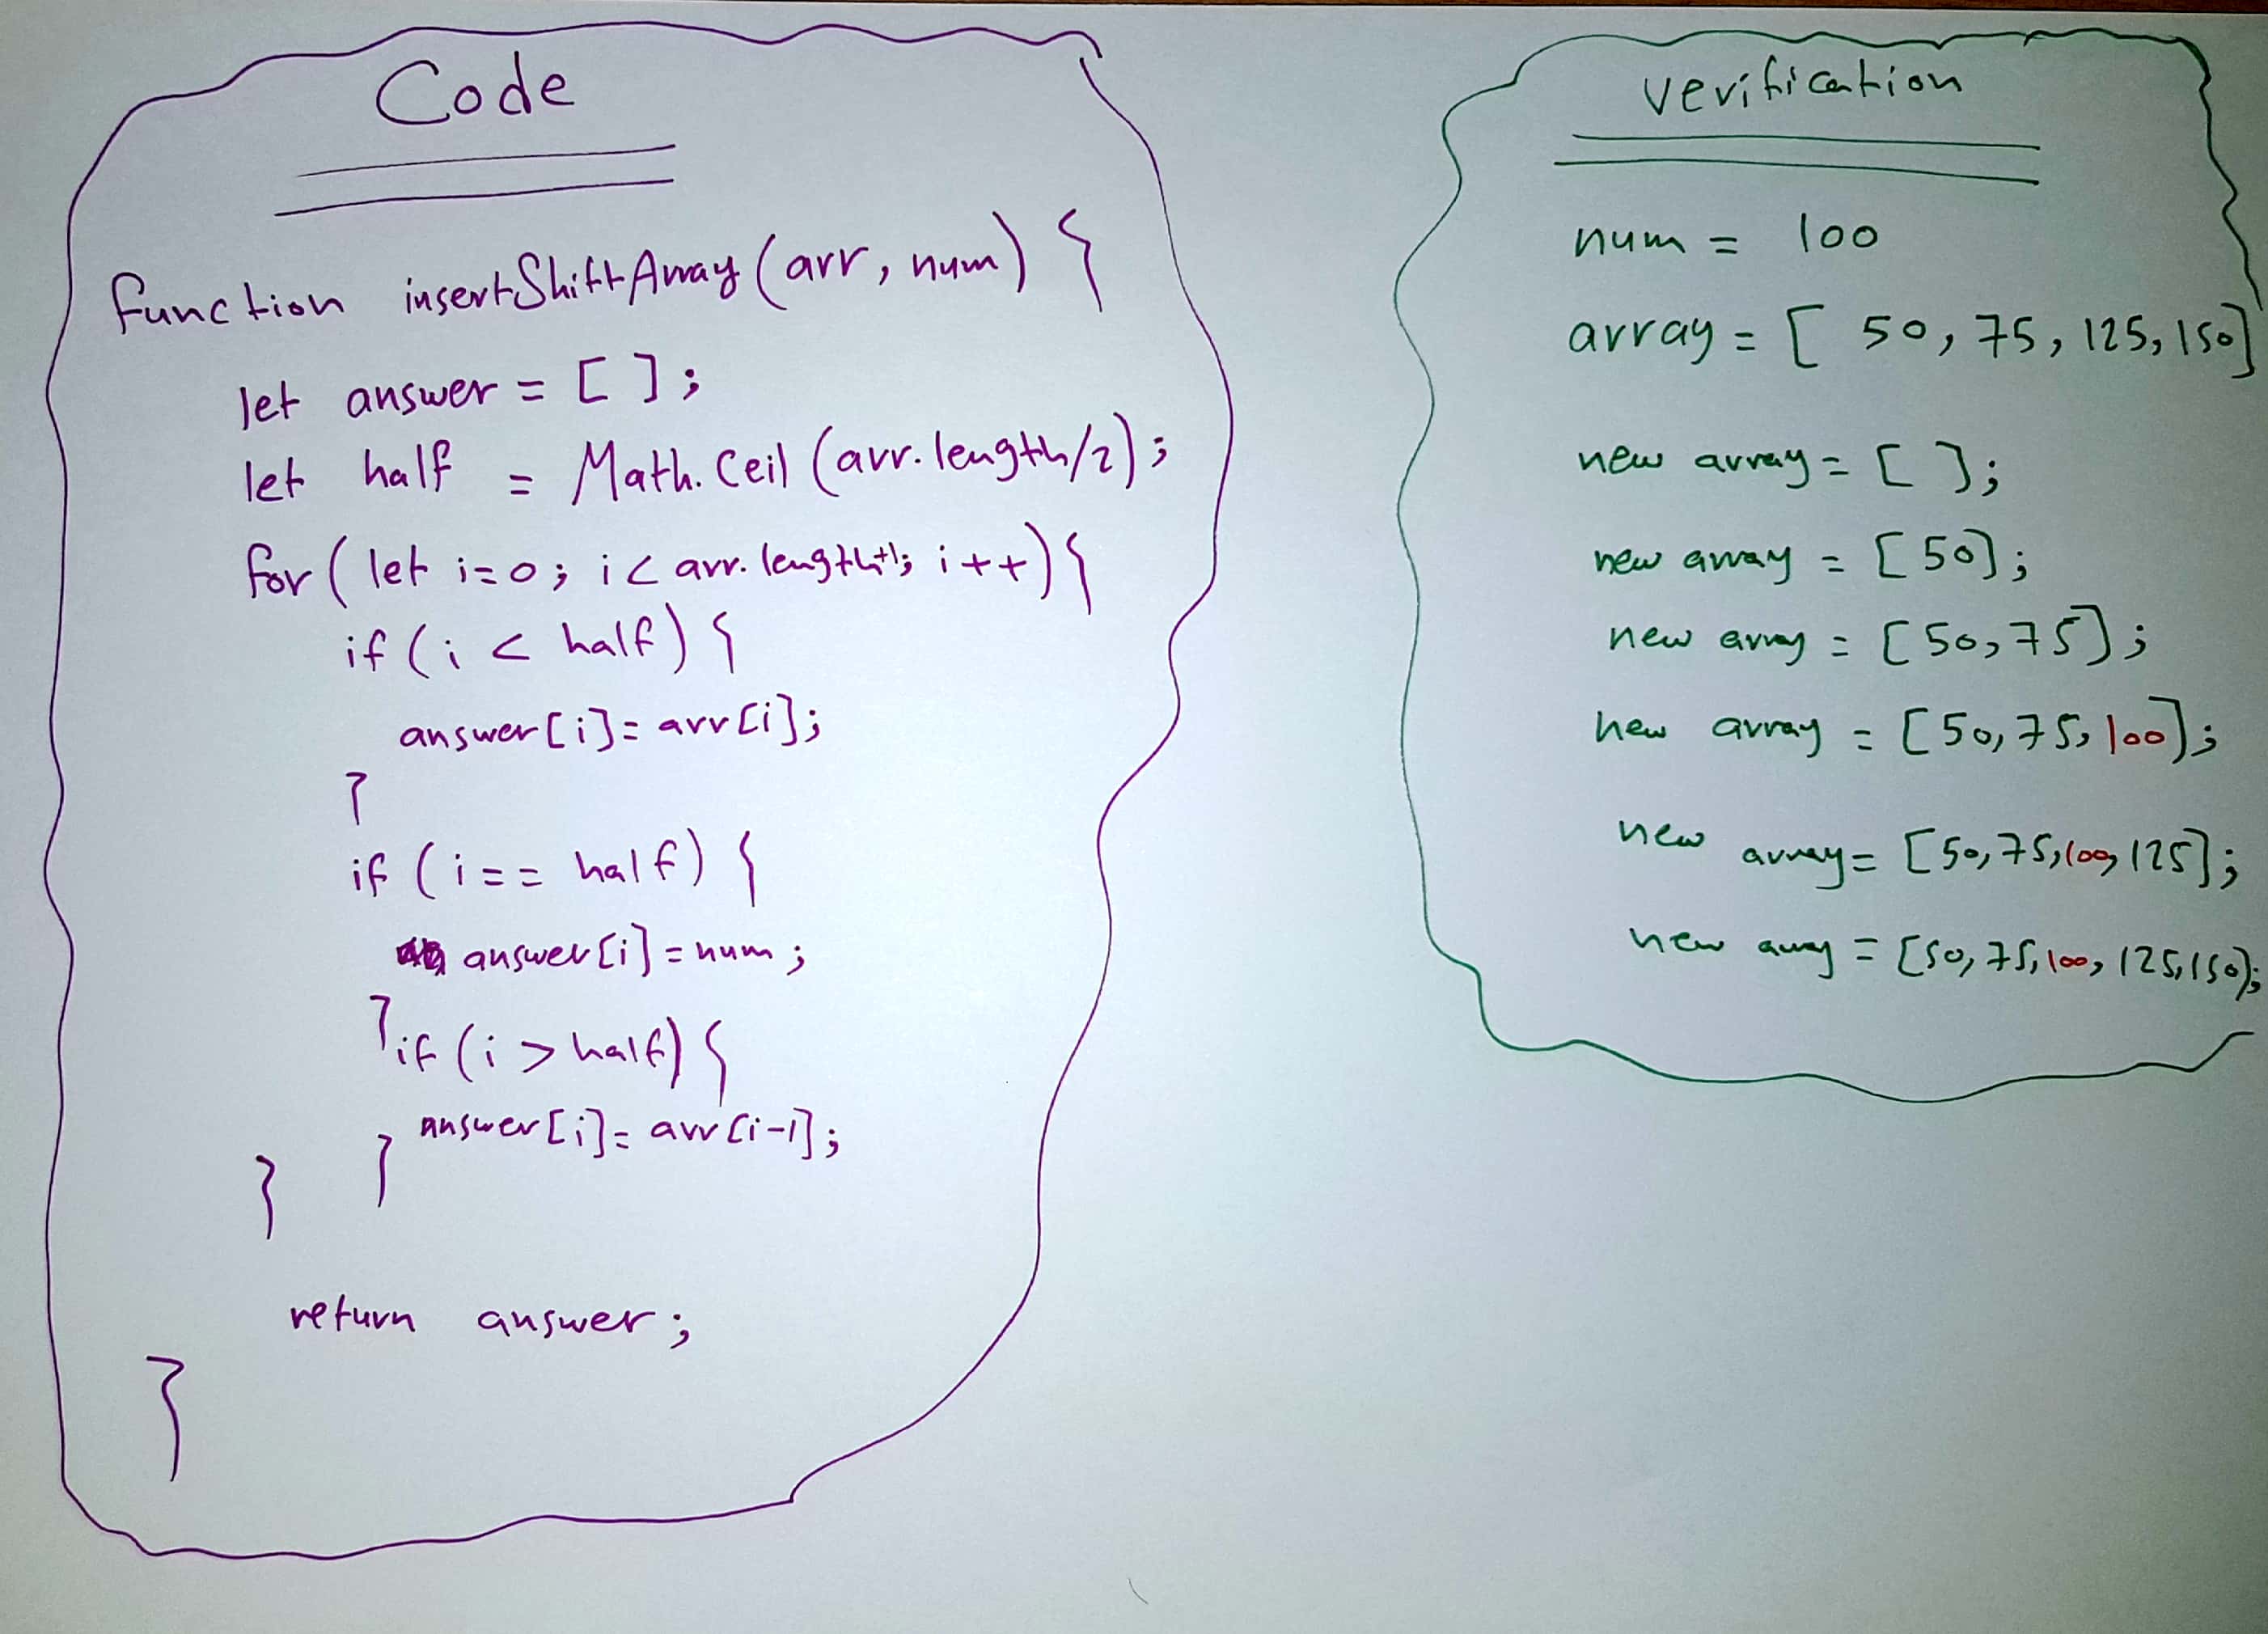 Code
function insertShiftArray (arr, num) {
let answer = [ ];
let half = Math. Ceil (arr. length/2);
for ( let i=0; i< arr. length+1; i++) {
if ( i < half) {
answer [i] = arr [i];
}
if ( i == half) {
answer [i] = num ;
}
if ( i > half) {
answer [i] = arr [i-1];
}
}
return answer ;
}
verification
num = 100
array = [ 50, 75, 125, 150]
new array = [ ];
new array = [ 50];
new array = [ 50, 75];
new array = [ 50, 75, 100];
new array = [ 50, 75, 100, 125];
new array = [50, 75, 100, 125, 150];